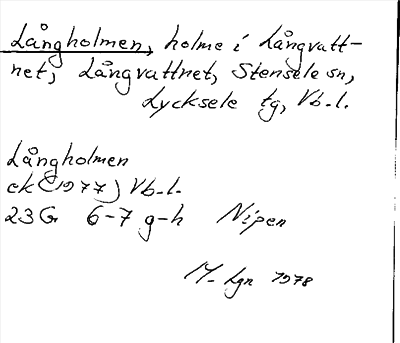 Långholmen, holme i Långvatt-
net, Långvattnet, Stensele sn,
Lycksele tg, Vb. l.
Långholmen
ek (1977) Vb. l.
23G 6-7 g-h Nipen
M. Lgn 1978